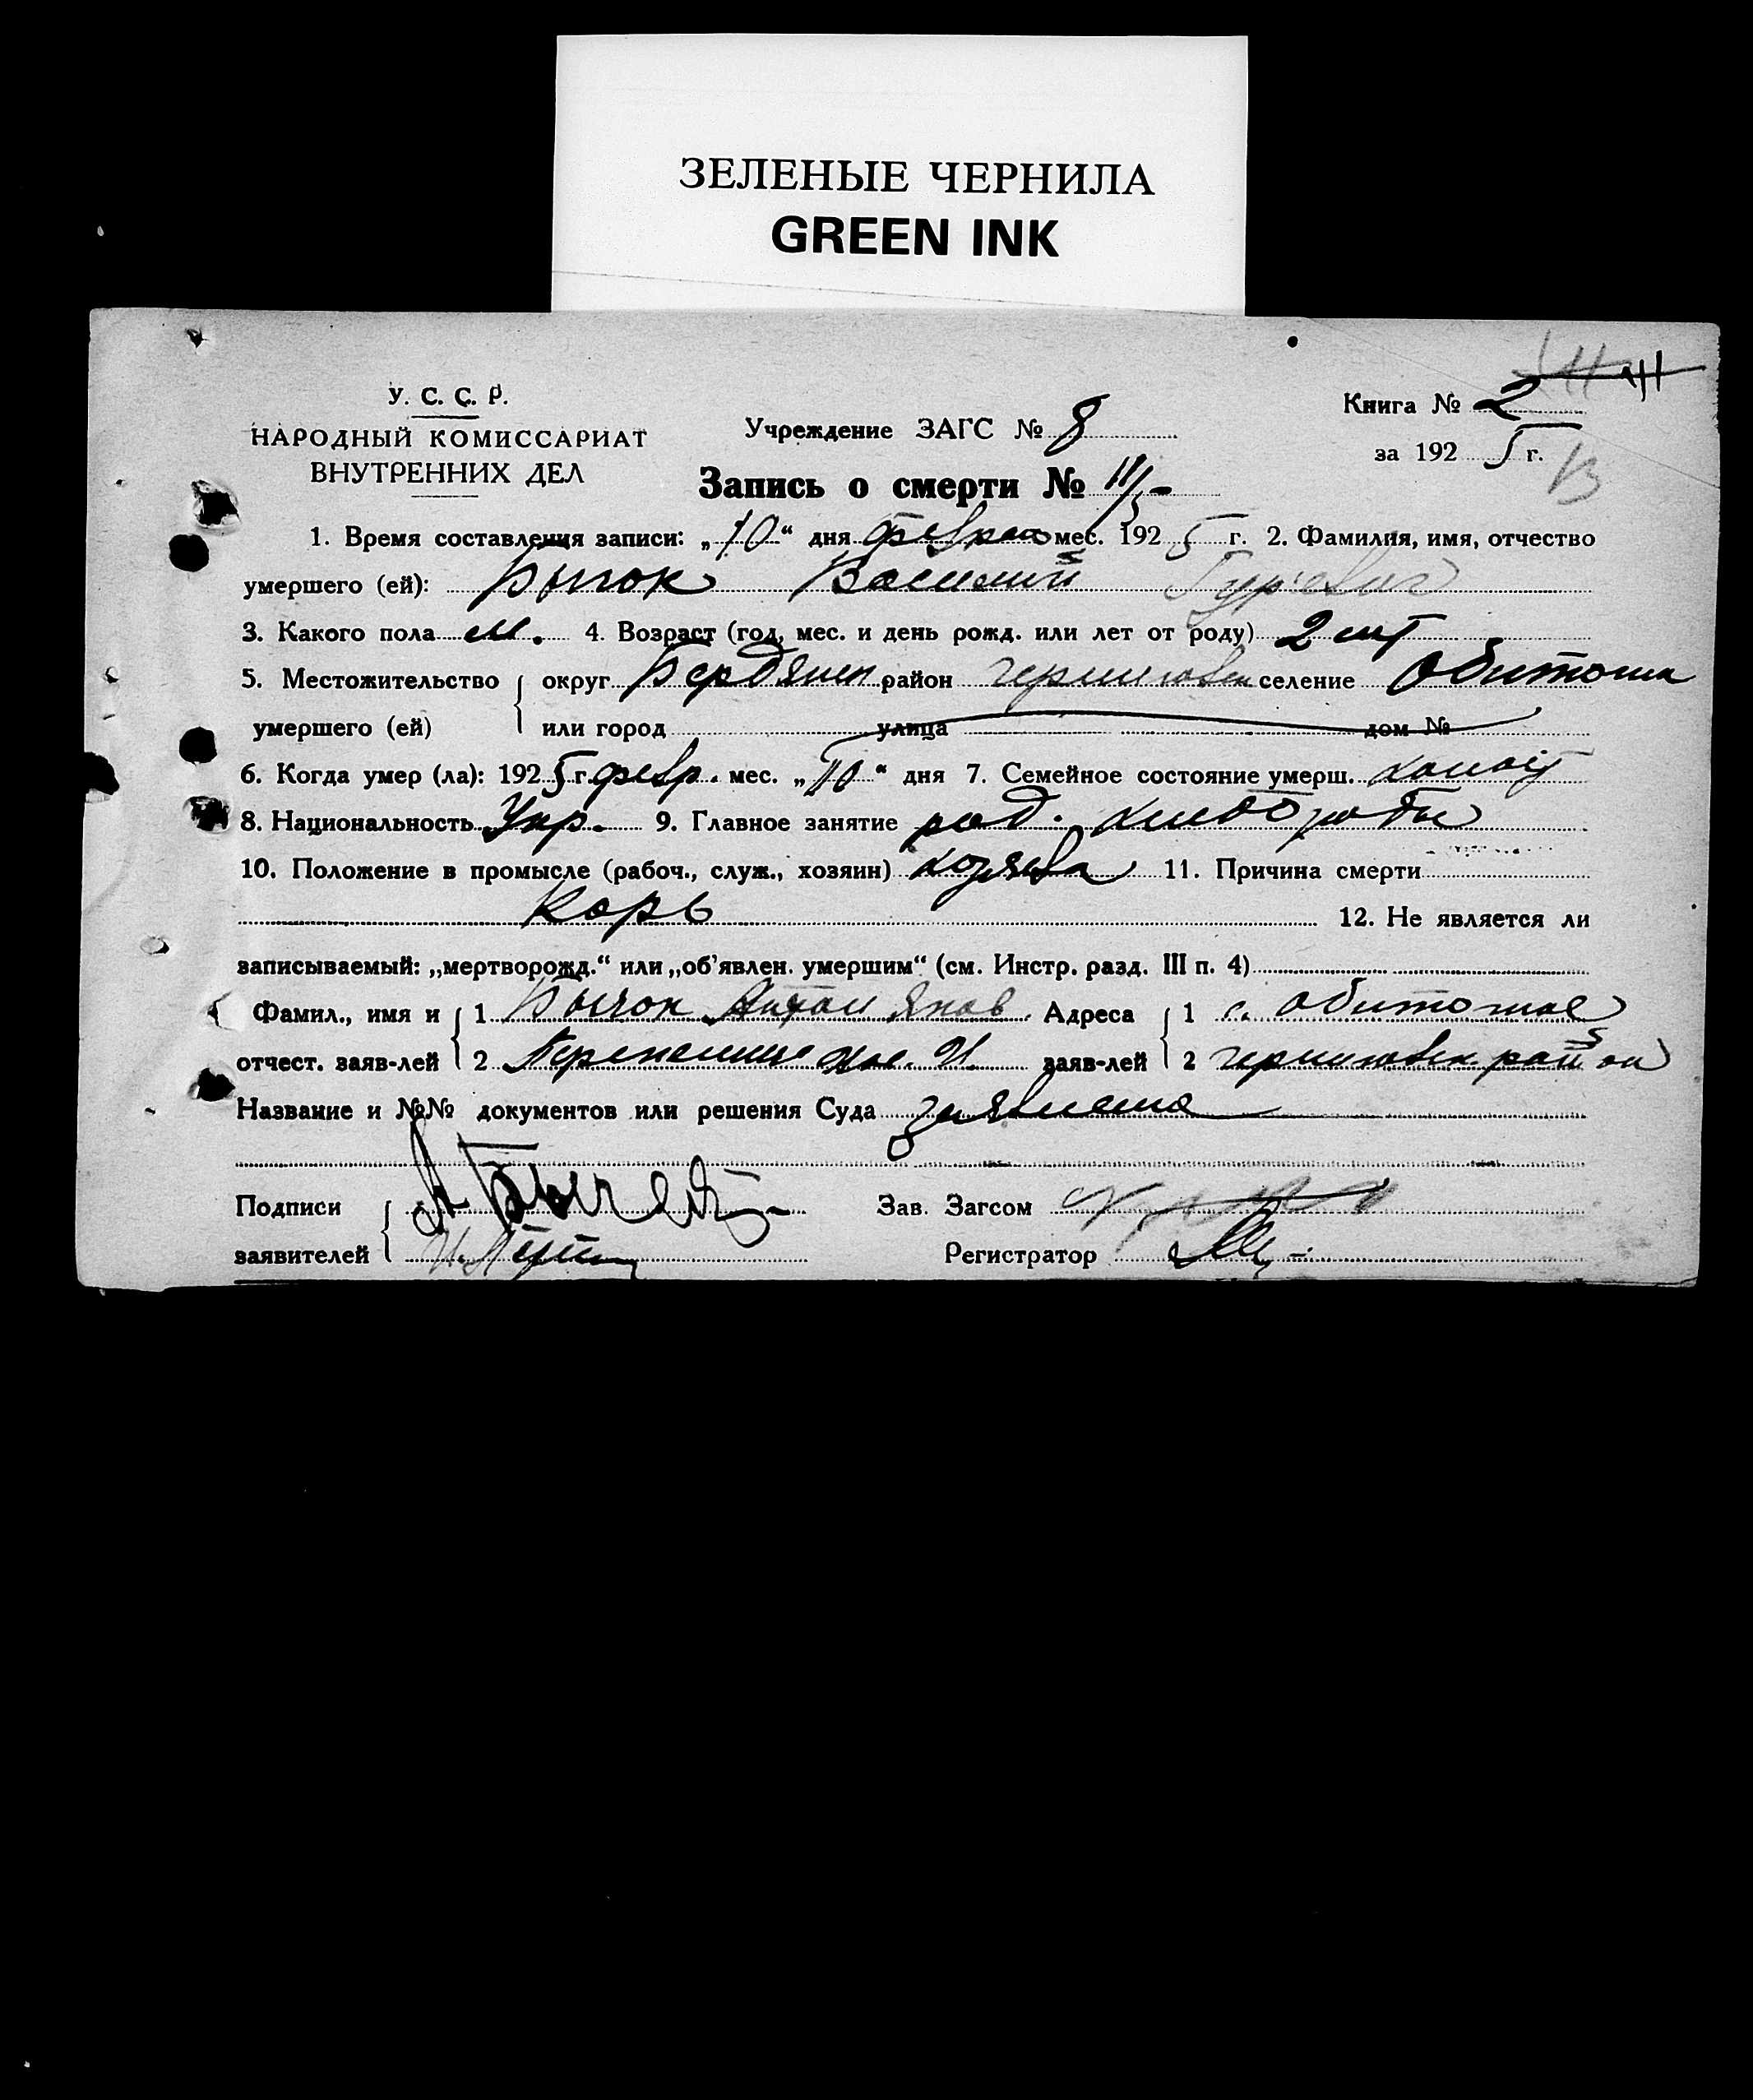 ЗЕЛЕНЫЕ ЧЕРНИЛА
GREEN INK
У. С. С. Р.
НАРОДНЫЙ КОМИССАРИАТ
ВНУТРЕННИХ ДЕЛ
Учреждение ЗАГС № 8
Книга № 2
за 1925 г.
13
Запись о смерти № 11/
1. Время составления записи: „10“ дня мес. 1925 г. 2. Фамилия, имя, отчество
умершего (ей): Бычок Василий Гурьевич
3. Какого пола м. 4. Возраст (год, мес. и день рожд. или лет от роду) 2 лет
5. Местожительство округ Бердянск район черниговск селение Обиточн
умершего (ей) или город улица дом №
6. Когда умер (ла): 1925 г. февр. мес. „10“ дня 7. Семейное состояние умерш. холост
8. Национальность Укр. 9. Главное занятие род. хлеборобы
10. Положение в промысле (рабоч., служ., хозяин) хозяева 11. Причина смерти
Корь 12. Не является ли
записываемый: „мертворожд.“ или „об’явлен. умершим“ (см. Инстр. разд. III п. 4)
Фамил., имя и 1 Бычок Антон Яков. Адреса 1 с. Обиточное
отчест. заяв-лей 2 И. заяв-лей 2 черниговск. район
Название и №№ документов или решения Суда заявление
Подписи А Бычек Зав. Загсом
заявителей Регистратор